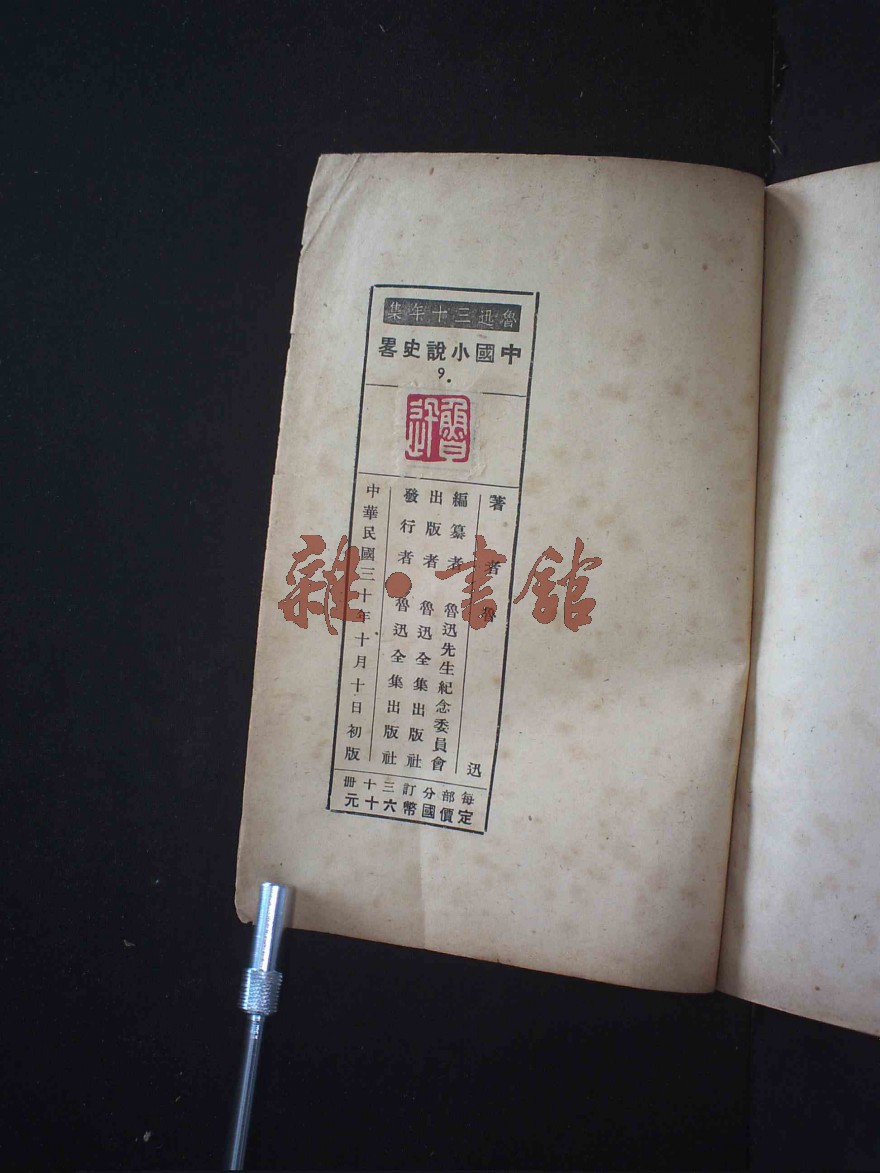 魯迅三十年集
中國小說史畧
9.
魯迅
著者 魯迅
編纂者 魯迅先生紀念委員會
出版者 魯迅全集出版社
發行者 魯迅全集出版社
中華民國三十年十月十日初版
每部分訂三十冊
定價國幣六十元
雜·書館